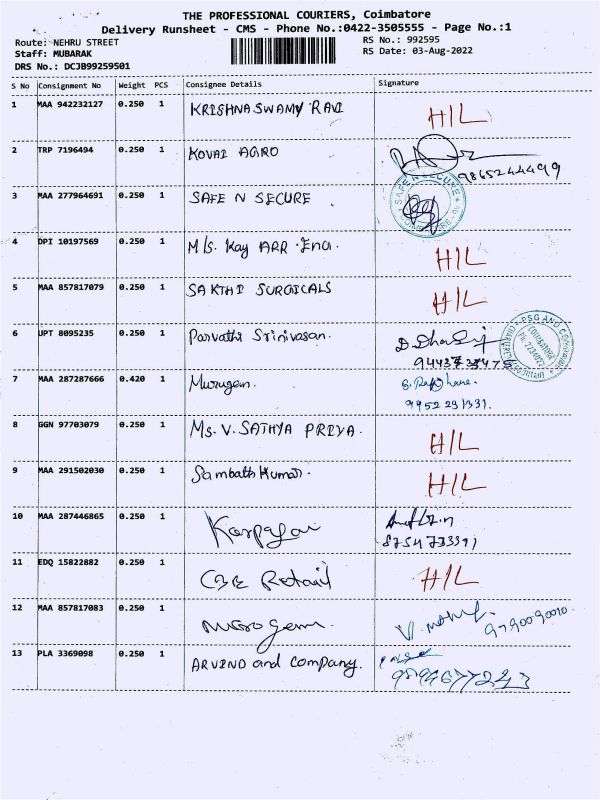 THE PROFESSIONAL COURIERS, Coimbatore
Delivery Runsheet - CMS - Phone No.:0422-3505555 - Page No.:1
Route: NEHRU STREET
Staff: MUBARAK
DRS No.: DCJB99259501
RS No.: 992595
RS Date: 03-Aug-2022
S No Consignment No Weight PCS Consignee Details Signature
1 MAA 942232127 0.250 1 KRISHNASWAMY RAVI H/L
2 TRP 7196494 0.250 1 KOVAI AGRO 9865244499
3 MAA 277964691 0.250 1 SAFE N SECURE SAFE N SECURE
4 DPI 10197569 0.250 1 M/s. Kay ARR Eng. H/L
5 MAA 857817079 0.250 1 SAKTHI SURGICALS H/L
6 UPT 8095235 0.250 1 Parvathi Srinivasan.
PSG AND
COIMBATORE
7 MAA 287287666 0.420 1 Murugan.
9952291331.
8 GGN 97703079 0.250 1 Ms. V. SATHYA PRIYA. H/L
9 MAA 291502030 0.250 1 Sambath Kumar. H/L
10 MAA 287446865 0.250 1 Karpagai
8754733391
11 EDQ 15822882 0.250 1 CBE Retail H/L
12 MAA 857817083 0.250 1 9790090010.
13 PLA 3369098 0.250 1 ARVIND and Company.